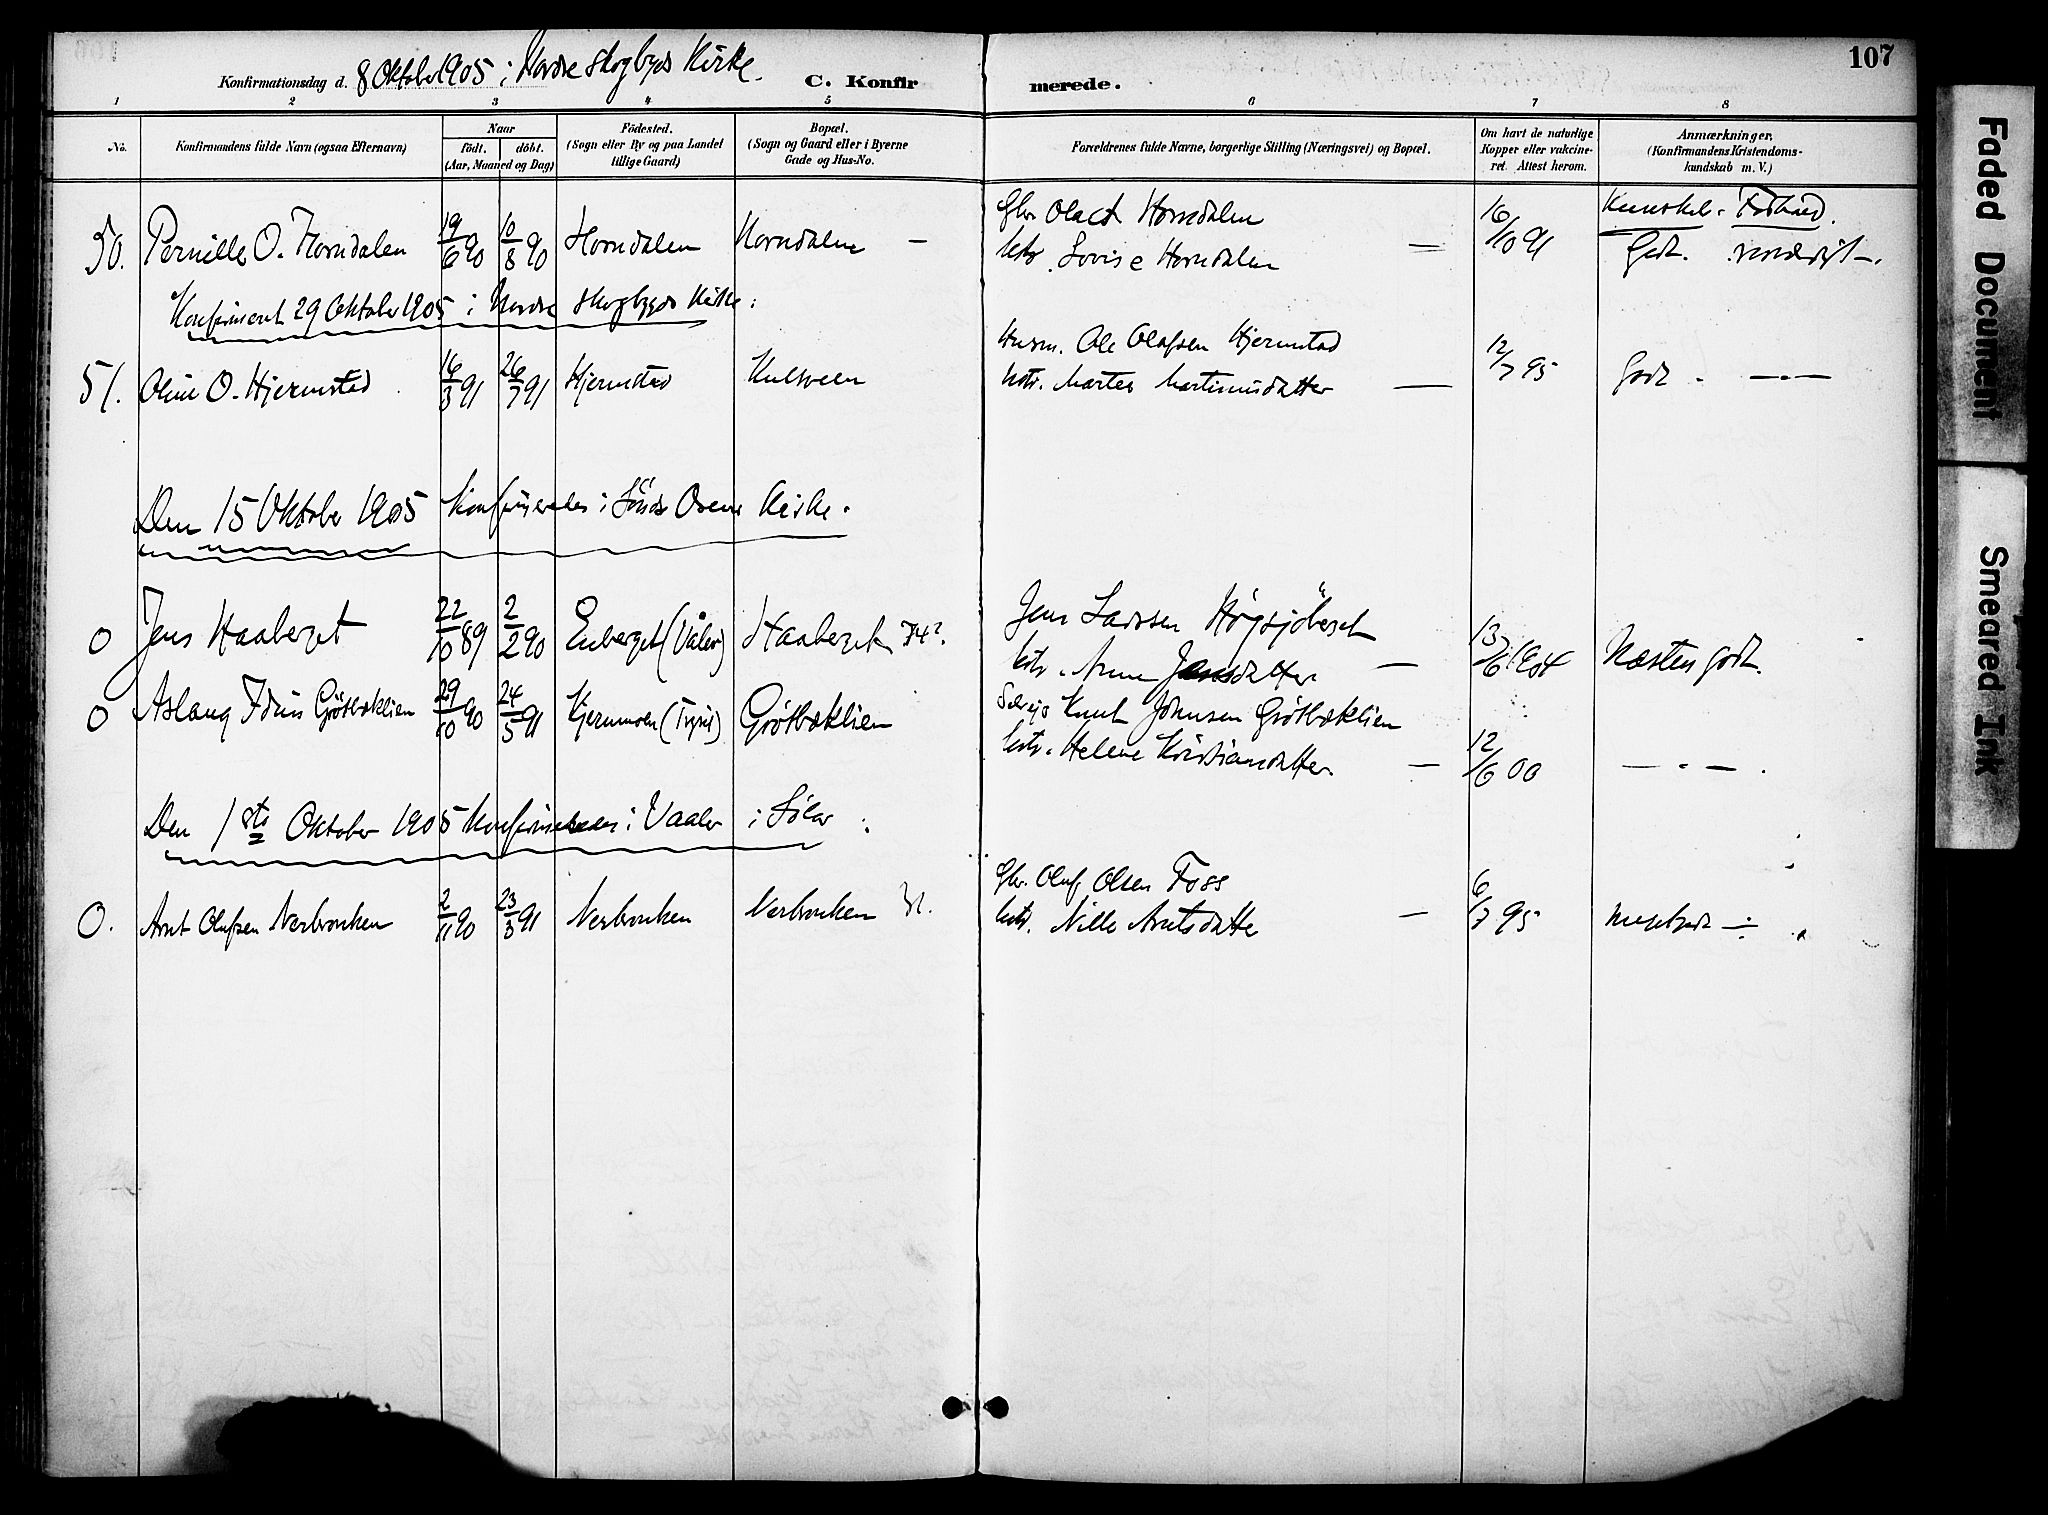 107
Konfirmationsdag d. 8 Oktober 1905 i Nordre Skogbyds Kirke.
C. Konfirmerede.
1 2 3 4 5 6 7 8
No.
Konfirmandens fulde Navn (ogsaa Efternavn)
Naar
födt. döbt.
(Aar, Maaned og Dag)
Födested.
(Sogn eller By og paa Landet
tillige Gaard)
Bopæl.
(Sogn og Gaard eller i Byerne
Gade og Hus-No.
Forældrenes fulde Navne, borgerlige Stilling (Næringsvei) og Bopæl.
Om havt de naturlige
Kopper eller vakcine-
ret. Attest herom.
Anmærkninger.
(Konfirmandens Kristendoms-
kundskab m. V.)
Kunskab. Forhold.
50. Pernille O. Horndalen 19/6 90 10/8 90 Horndalen Horndalen – Horndalen 16/10 91
Lovise Horndalen = Godt.
Konfirmeret 29 Oktober 1905 i Nordre Skogbygds Kirke:
51. Oline O. Hjermstad 16/3 91 26/7 91 Hjermstad Husm. Ole Olafsen Hjermstad 12/7 95 Godt. — . —
Martea Martinusdatter —
Den 15 Oktober 1905 Konfirmeredes i Söndr Osens Kirke.
0 Jens Haaberget 22/10 89 2/2 90 Enberget (Våler) Haaberget Jens Larssen Høgsjöberget 13/6 1904 Næsten godt.
Anne Jensdatter —
0 Aslaug Idun Grötbæklien 29/10 90 24/5 91 Hjernmoen (Trysil) Grötbæklien Knut Johnsen Grötbæklien 12/6 00 — . — .
Helene Kristiansdatter —
Den 1ste Oktober 1905 Konfirmeredes i Vaaler i Sölør:
0. Arnt Olufsen Nerbronken 2/11 90 23/3 91 Nerbronken Nerbronken Oluf Olsen Foss 6/7 95
Nille Arntsdatter —
Faded Document
Smeared Ink